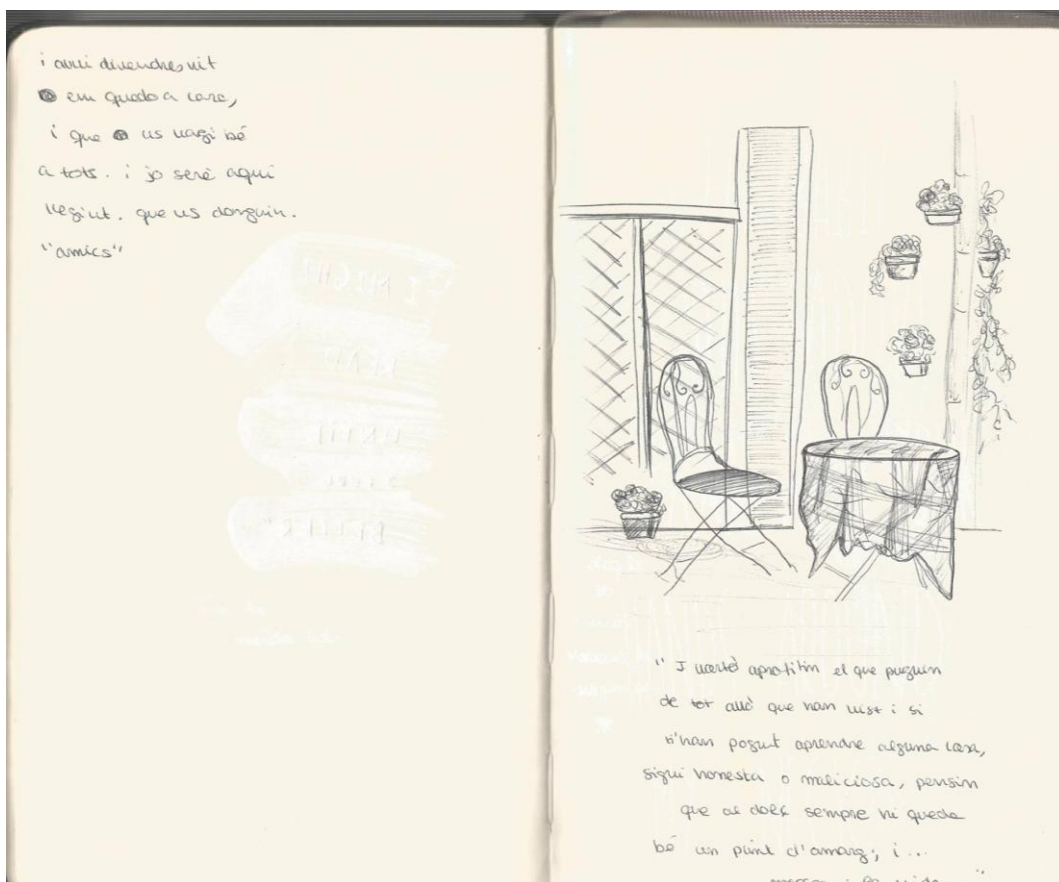 i avui divendres nit
em quedo a casa,
i que us vagi bé
a tots. i jo seré aquí
llegint. que us donguin.
"amics"
" I vostè aprofitin el que puguin
de tot allò que han vist i si
n'han pogut aprendre alguna cosa,
sigui honesta o maliciosa, pensin
que al dolç sempre hi queda
bé un punt d'amarg; i ...